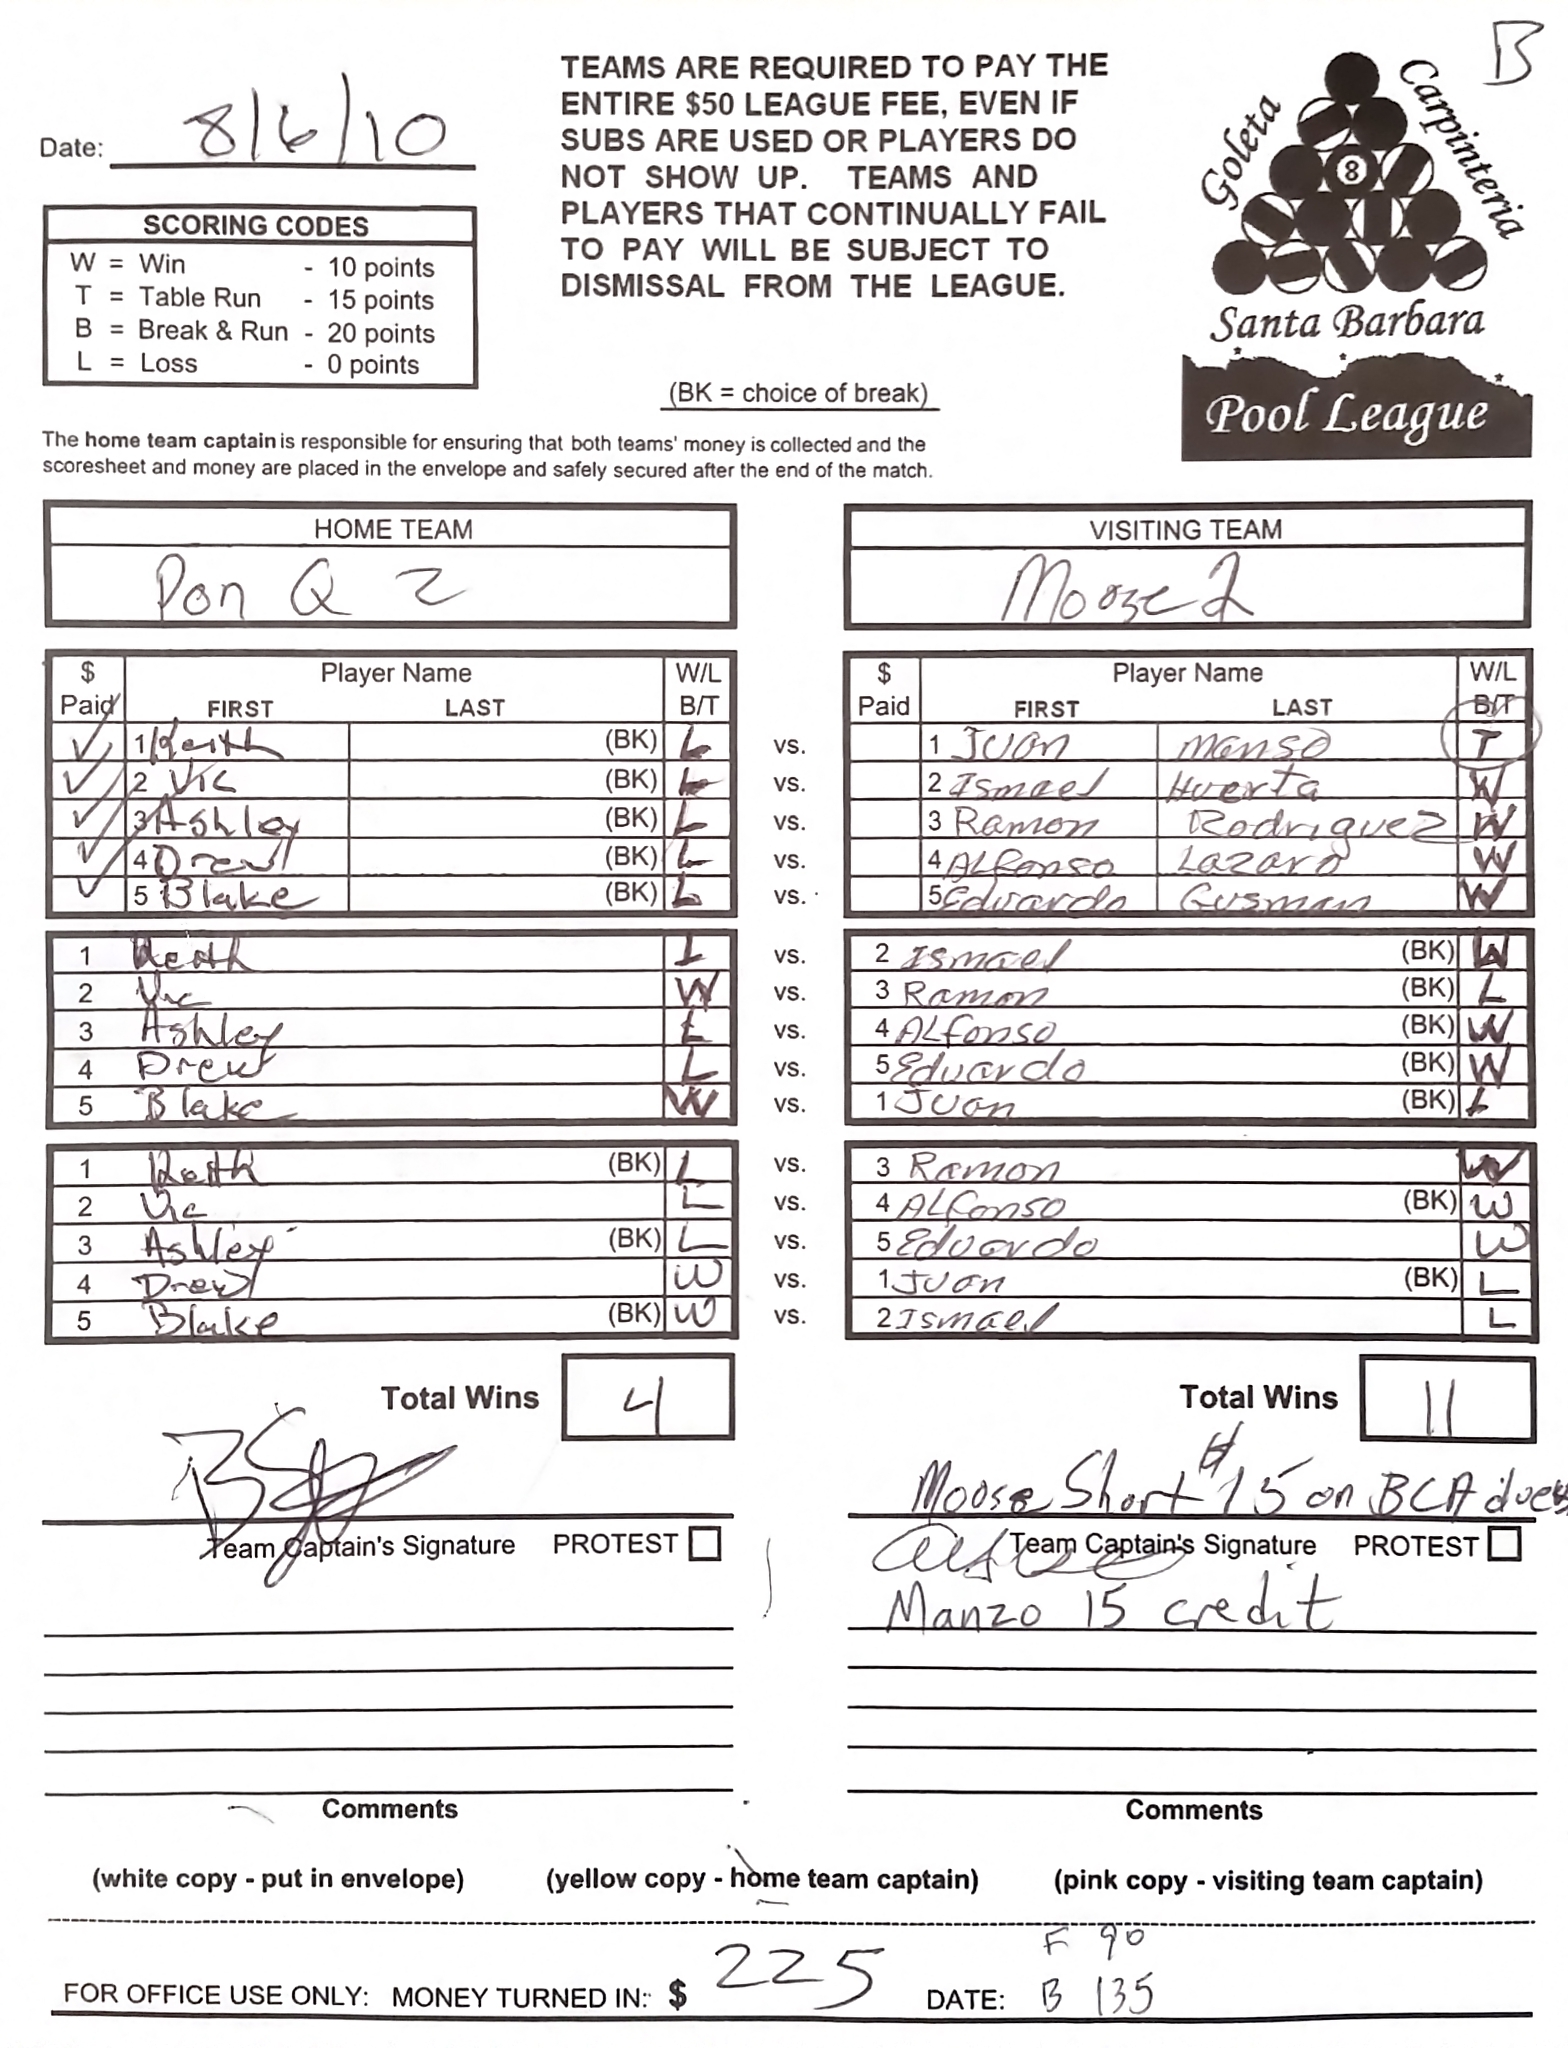 B
Date: 8/6/10
SCORING CODES
W = Win - 10 points
T = Table Run - 15 points
B = Break & Run - 20 points
L = Loss - 0 points
TEAMS ARE REQUIRED TO PAY THE
ENTIRE $50 LEAGUE FEE, EVEN IF
SUBS ARE USED OR PLAYERS DO
NOT SHOW UP. TEAMS AND
PLAYERS THAT CONTINUALLY FAIL
TO PAY WILL BE SUBJECT TO
DISMISSAL FROM THE LEAGUE.
(BK = choice of break)
Goleta
Carpinteria
8
Santa Barbara
Pool League
The home team captain is responsible for ensuring that both teams' money is collected and the
scoresheet and money are placed in the envelope and safely secured after the end of the match.
HOME TEAM
Don Q 2
VISITING TEAM
Moose 2
$ Paid Player Name FIRST LAST W/L B/T
1 Keith (BK) L
2 Vic (BK) L
3 Ashley (BK) L
4 Drew (BK) L
5 Blake (BK) L
vs.
vs.
vs.
vs.
vs.
$ Paid Player Name FIRST LAST W/L B/T
1 Juan Manso T
2 Ismael Huerta W
3 Ramon Rodriguez W
4 ALfonso Lazaro W
5 Eduardo Gusman W
1 Keith L vs. 2 Ismael (BK) W
2 Vic W vs. 3 Ramon (BK) L
3 Ashley L vs. 4 ALfonso (BK) W
4 Drew L vs. 5 Eduardo (BK) W
5 Blake W vs. 1 Juan (BK) L
1 Keith (BK) L vs. 3 Ramon W
2 Vic L vs. 4 ALfonso (BK) W
3 Ashley (BK) L vs. 5 Eduardo W
4 Drew W vs. 1 Juan (BK) L
5 Blake (BK) W vs. 2 Ismael L
Total Wins 4
Total Wins 11
Moose Short $15 on BCA dues
Team Captain's Signature PROTEST
Team Captain's Signature PROTEST
Manzo 15 credit
Comments
Comments
(white copy - put in envelope) (yellow copy - home team captain) (pink copy - visiting team captain)
FOR OFFICE USE ONLY: MONEY TURNED IN: $ 225 DATE: F 90
B 135